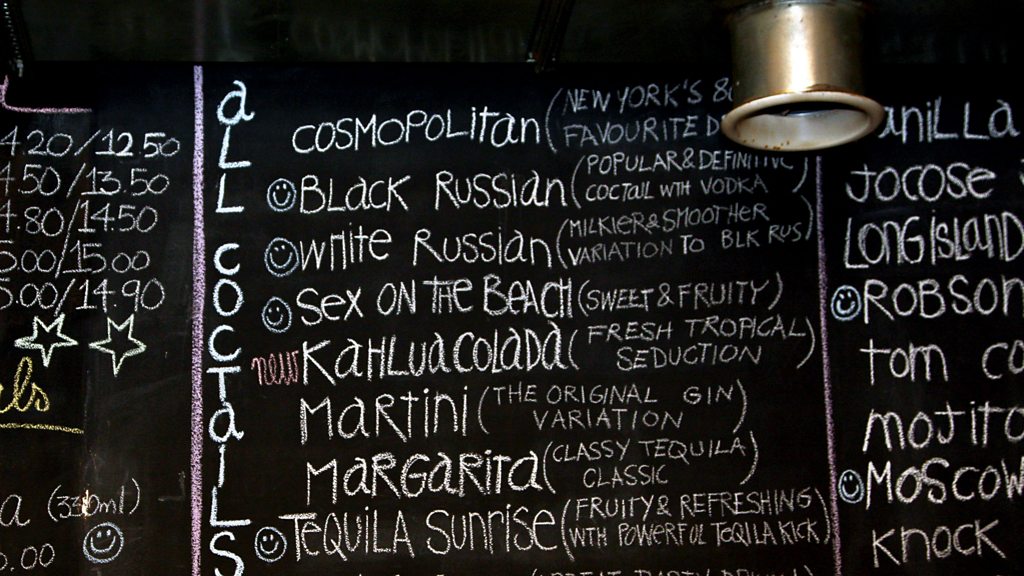 4.20/12.50
4.50/13.50
4.80/14.50
5.00/15.00
5.00/14.90
(330ml)
ALL COCTAILS
COSMOPOLITAN (NEW YORK'S
FAVOURITE
BLACK RUSSIAN (POPULAR & DEFINITIVE
COCTAIL WTH VODKA)
WHITE RUSSIAN (MILKIER & SMOOTHER
VARIATION TO BLK RUS)
SEX ON THE BEACH (SWEET & FRUITY)
new KAHLUACOLADA (FRESH TROPICAL
SEDUCTION)
MARTINI (THE ORIGINAL GIN
VARIATION)
MARGARITA (CLASSY TEQUILA
CLASSIC)
TEQUILA SUNRISE (FRUITY & REFRESHING
WTH POWERFUL TEQILA KICK)
JOCOSE
LONG ISLAND
ROBSON
TOM
MOJITO
MOSCOW
KNOCK